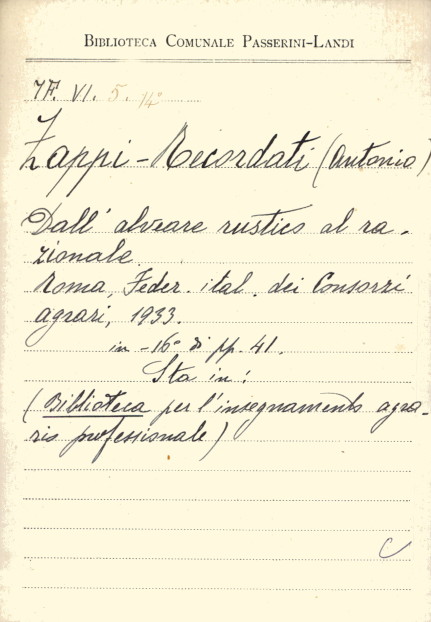 BIBLIOTECA COMUNALE PASSERINI-LANDI
7F. VI. 5. 14°
Zappi-Recordati (Antonio)
Dall' alveare rustico al ra-
zionale.
Roma, Feder. ital. dei Consorzi
agrari, 1933.
in -16° di pp. 41.
Sta in:
(Biblioteca per l'insegnamento agra-
rio professionale)
C